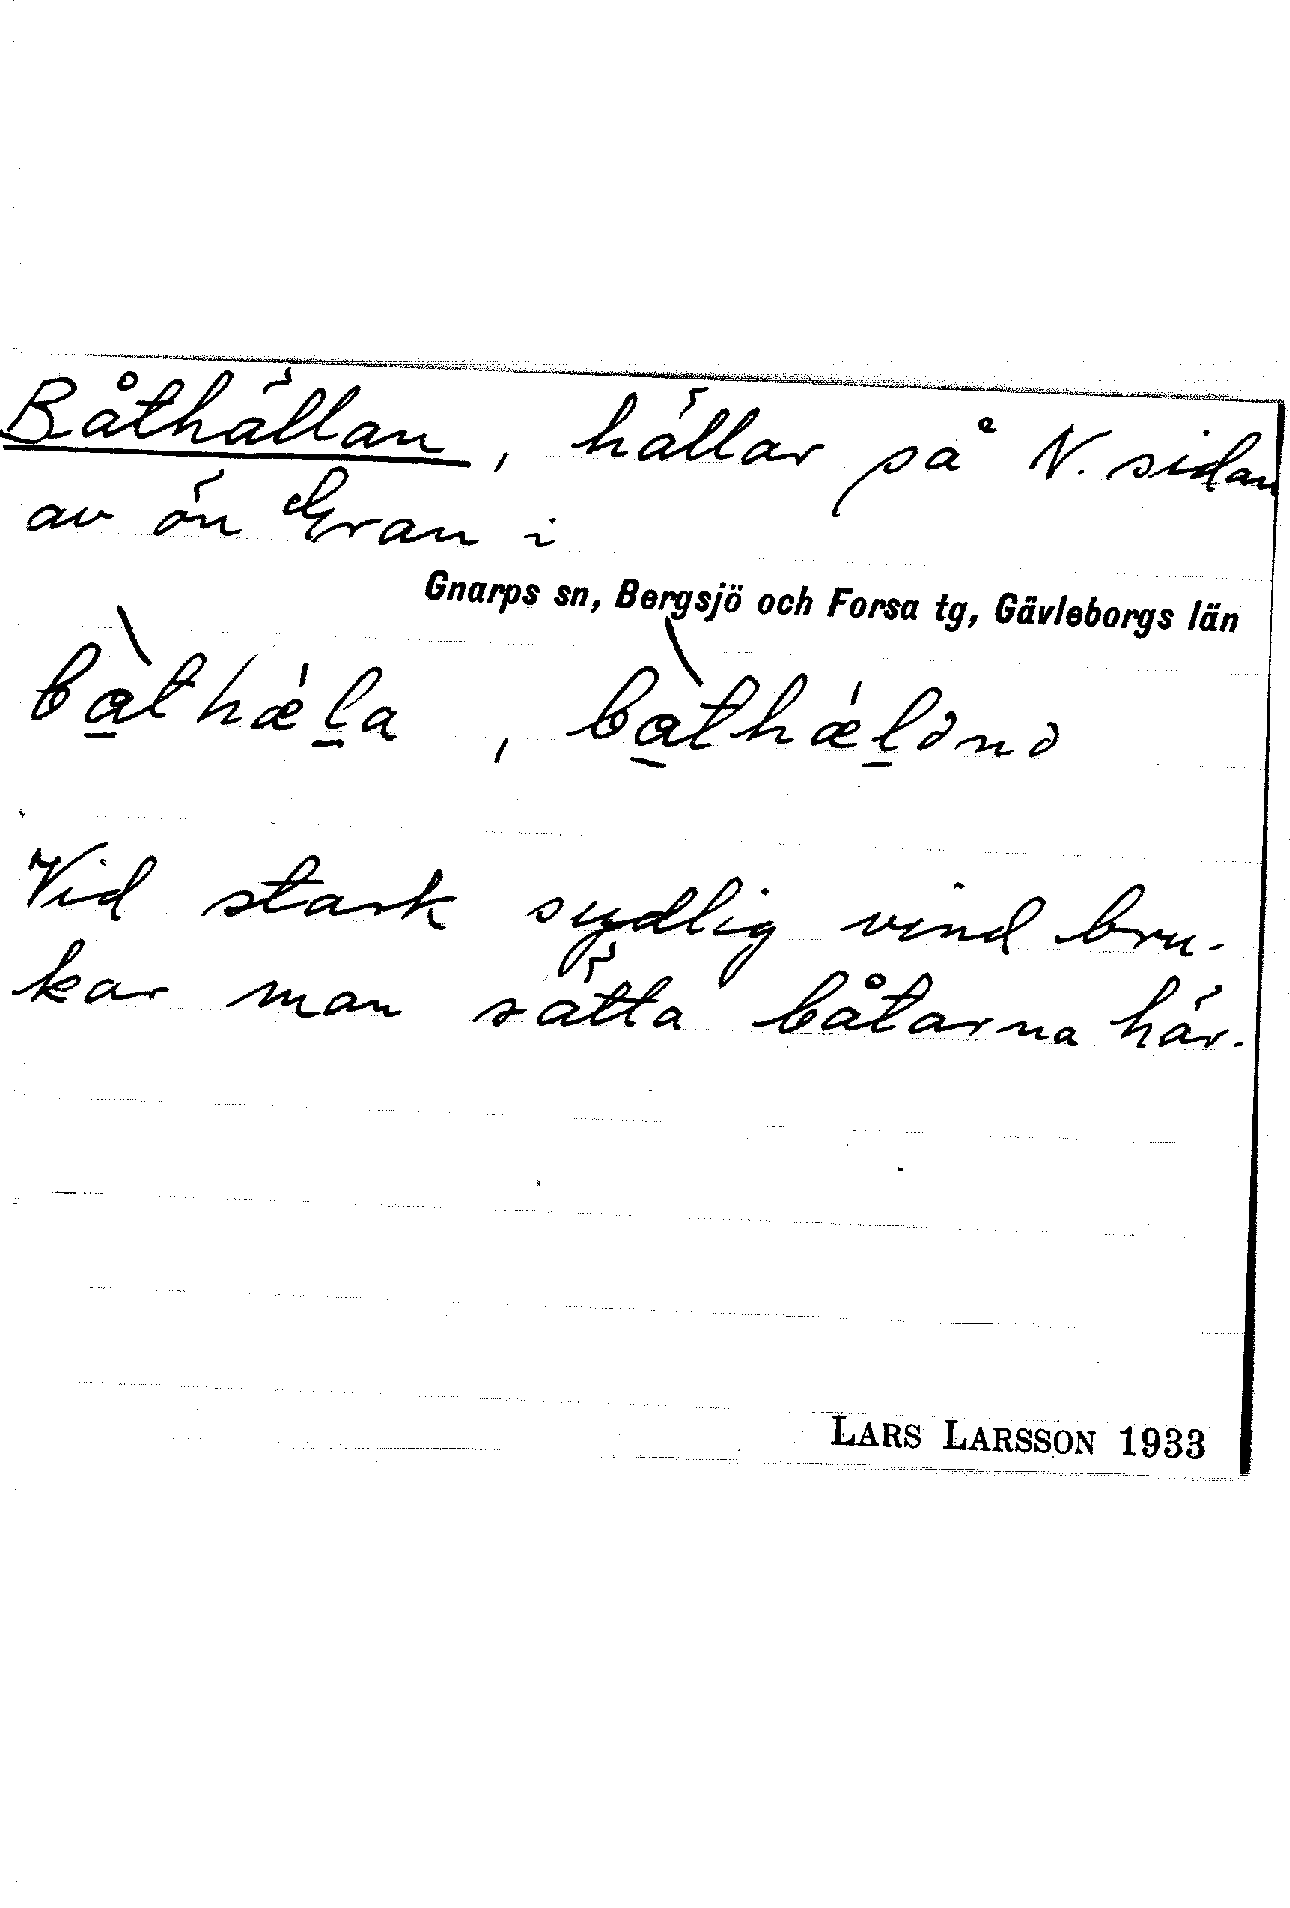 Båthällan, hällar på N. sidan
av ön Gran i
Gnarps sn, Bergsjö och Forsa tg, Gävleborgs län
bàthǽla, bàthǽlənə
Vid stark sydlig vind bru-
kar man sätta båtarna här.
LARS LARSSON 1933